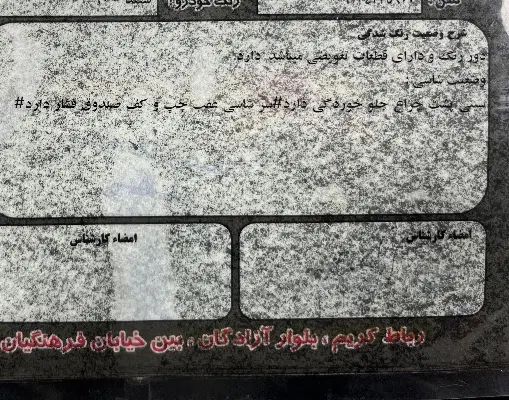 تلفن :
رنگ خودرو :
شرح وضعیت رنگ شدگی
دور رنگ و دارای قطعات تعویضی میباشد. دارد.
وضعیت شاسی :
سینی پشت چراغ جلو خوردگی دارد#سر شاسی عقب چپ و کف صندوق فشار دارد#
امضاء کارشناس
امضاء کارشناس
رباط کریم ، بلوار آزادگان ، بین خیابان فرهنگیان